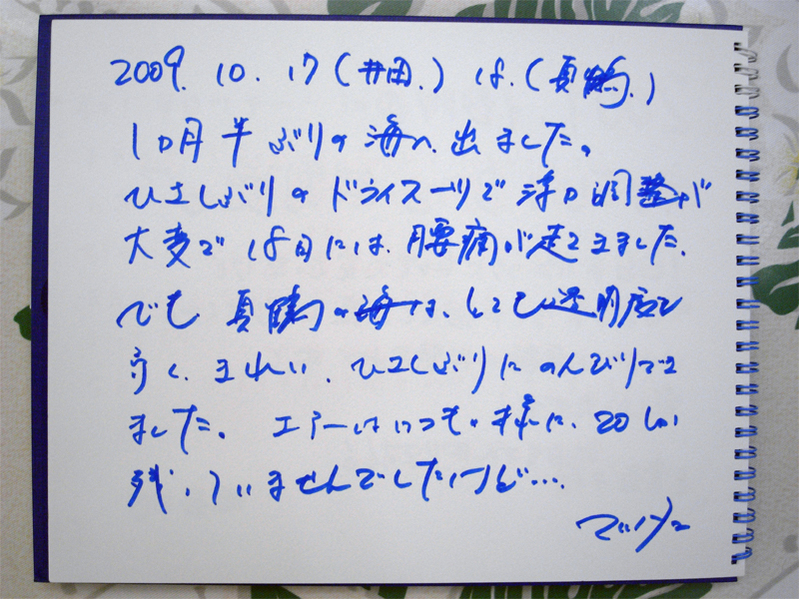 2009. 10. 17 (井田.) 18. (真鶴.)
1ヶ月半ぶりの海へ出ました。
ひさしぶりのドライスーツで浮力調整が
大変で18日には、腰痛が走てきました.
でも真鶴の海は、とても透明度も
高く、きれい、ひさしぶりにのんびりでき
ました。エアーはいつもの様に、20しか
残っていませんでしたけど….